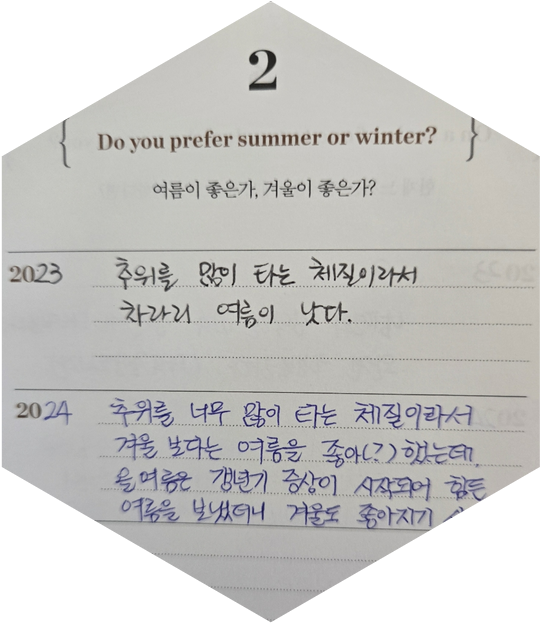 2
Do you prefer summer or winter?
여름이 좋은가, 겨울이 좋은가?
2023 추위를 많이 타는 체질이라서
차라리 여름이 낫다.
2024 추위를 너무 많이 타는 체질이라서
겨울 보다는 여름을 좋아(?) 했는데,
올여름은 갱년기 증상이 시작되어 힘든
여름을 보냈더니 겨울도 좋아지기